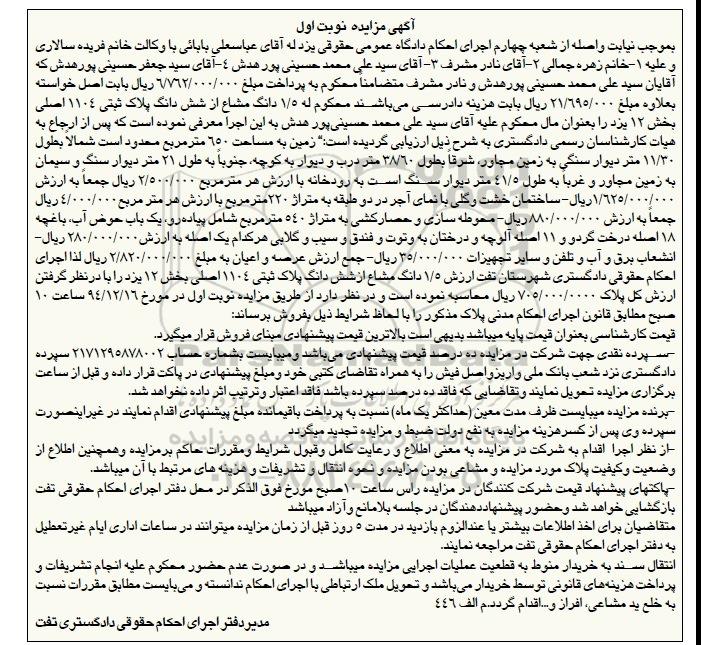 آگهی مزایده نوبت اول
بموجب نیابت واصله از شعبه چهارم اجرای احکام دادگاه عمومی حقوقی یزد له آقای عباسعلی بابائی با وکالت خانم فریده سالاری
و علیه ۱-خانم زهره جمالی ۲-آقای نادر مشرف ۳- آقای سید علی محمد حسینی پور هدش ۴-آقای سید جعفر حسینی پورهدش که
آقایان سید علی محمد حسینی پورهدش و نادر مشرف متضامناً محکوم به پرداخت مبلغ ۶/۷۶۲/۰۰۰/۰۰۰ ریال بابت اصل خواسته
بعلاوه مبلغ ۲۱/۶۹۵/۰۰۰ ریال بابت هزینه دادرسی می‌باشند محکوم له ۱/۵ دانگ مشاع از شش دانگ پلاک ثبتی ۱۱۰۴ اصلی
بخش ۱۲ یزد را بعنوان مال محکوم علیه آقای سید علی محمد حسینی‌پور هدش به این اجرا معرفی نموده است که پس از ارجاع به
هیات کارشناسان رسمی دادگستری به شرح ذیل ارزیابی گردیده است:" زمین به مساحت ۶۵۰ مترمربع محدود است شمالاً بطول
۱۱/۳۰ متر دیوار سنگی به زمین مجاور، شرقاً بطول ۳۸/۶۰ متر درب و دیوار به کوچه، جنوباً به طول ۲۱ متر دیوار سنگ و سیمان
به زمین مجاور و غرباً به طول ۴۱/۵ متر دیوار سنگ است به رودخانه با ارزش هر مترمربع ۲/۵۰۰/۰۰۰ ریال جمعاً به ارزش
۱/۶۲۵/۰۰۰/۰۰۰ریال- ساختمان خشت وگلی با نمای آجر در دو طبقه به متراژ ۲۲۰مترمربع با ارزش هر متر مربع ۴/۰۰۰/۰۰۰ ریال
جمعاً به ارزش ۸۸۰/۰۰۰/۰۰۰ریال- محوطه سازی و حصارکشی به متراژ ۵۴۰ مترمربع شامل پیاده‌رو، یک باب حوض آب، باغچه
۱۸ اصله درخت گردو و ۱۱ اصله آلوچه و درختان به وتوت و فندق و سیب و گلابی هرکدام یک اصله به ارزش۲۸۰/۰۰۰/۰۰۰ ریال-
انشعاب برق و آب و تلفن و سایر تجهیزات ۳۵/۰۰۰/۰۰۰ ریال- جمع ارزش عرصه و اعیان به مبلغ ۲/۸۲۰/۰۰۰/۰۰۰ ریال لذا اجرای
احکام حقوقی دادگستری شهرستان تفت ارزش ۱/۵ دانگ مشاع ازشش دانگ پلاک ثبتی ۱۱۰۴ اصلی بخش ۱۲ یزد را با درنظر گرفتن
ارزش کل پلاک ۷۰۵/۰۰۰/۰۰۰۰ ریال محاسبه نموده است و در نظر دارد از طریق مزایده نوبت اول در مورخ ۹۴/۱۲/۱۶ ساعت ۱۰
صبح مطابق قانون اجرای احکام مدنی پلاک مذکور را با لحاظ شرایط ذیل بفروش برساند:
قیمت کارشناسی بعنوان قیمت پایه میباشد بدیهی است بالاترین قیمت پیشنهادی مبنای فروش قرار میگیرد.
-سپرده نقدی جهت شرکت در مزایده ده درصد قیمت پیشنهادی می‌باشد ومیبایست بشماره حساب ۲۱۷۱۲۹۵۸۷۸۰۰۲ سپرده
دادگستری نزد شعب بانک ملی واریزواصل فیش را به همراه تقاضای کتبی خود ومبلغ پیشنهادی در پاکت قرار داده و قبل از ساعت
برگزاری مزایده تحویل نمایند وتقاضایی که فاقد ده درصد سپرده باشد فاقد اعتبار وترتیب اثر داده نخواهد شد.
-برنده مزایده میبایست ظرف مدت معین (حداکثر یک ماه) نسبت به پرداخت باقیمانده مبلغ پیشنهادی اقدام نمایند در غیراینصورت
سپرده وی پس از کسرهزینه مزایده به نفع دولت ضبط و مزایده تجدید میگردد
-از نظر اجرا اقدام به شرکت در مزایده به معنی اطلاع و رعایت کامل وقبول شرایط ومقررات حاکم برمزایده وهمچنین اطلاع از
وضعیت وکیفیت پلاک مورد مزایده و مشاعی بودن مزایده و نحوه انتقال و تشریفات و هزینه های مرتبط با آن میباشد.
-پاکتهای پیشنهاد قیمت شرکت کنندگان در مزایده رأس ساعت ۱۰صبح مورخ فوق الذکر در محل دفتر اجرای احکام حقوقی تفت
بازگشایی خواهد شد وحضور پیشنهاددهندگان در جلسه بلامانع وآزاد میباشد
متقاضیان برای اخذ اطلاعات بیشتر یا عندالزوم بازدید در مدت ۵ روز قبل از زمان مزایده میتوانند در ساعات اداری ایام غیرتعطیل
به دفتر اجرای احکام حقوقی تفت مراجعه نمایند.
انتقال سند به خریدار منوط به قطعیت عملیات اجرایی مزایده میباشد و در صورت عدم حضور محکوم علیه انجام تشریفات و
پرداخت هزینه‌های قانونی توسط خریدار می‌باشد و تحویل ملک ارتباطی با اجرای احکام ندانسته و می‌بایست مطابق مقررات نسبت
به خلع ید مشاعی، افراز و...اقدام گردد.م الف ۴۴۶
مدیردفتر اجرای احکام حقوقی دادگستری تفت